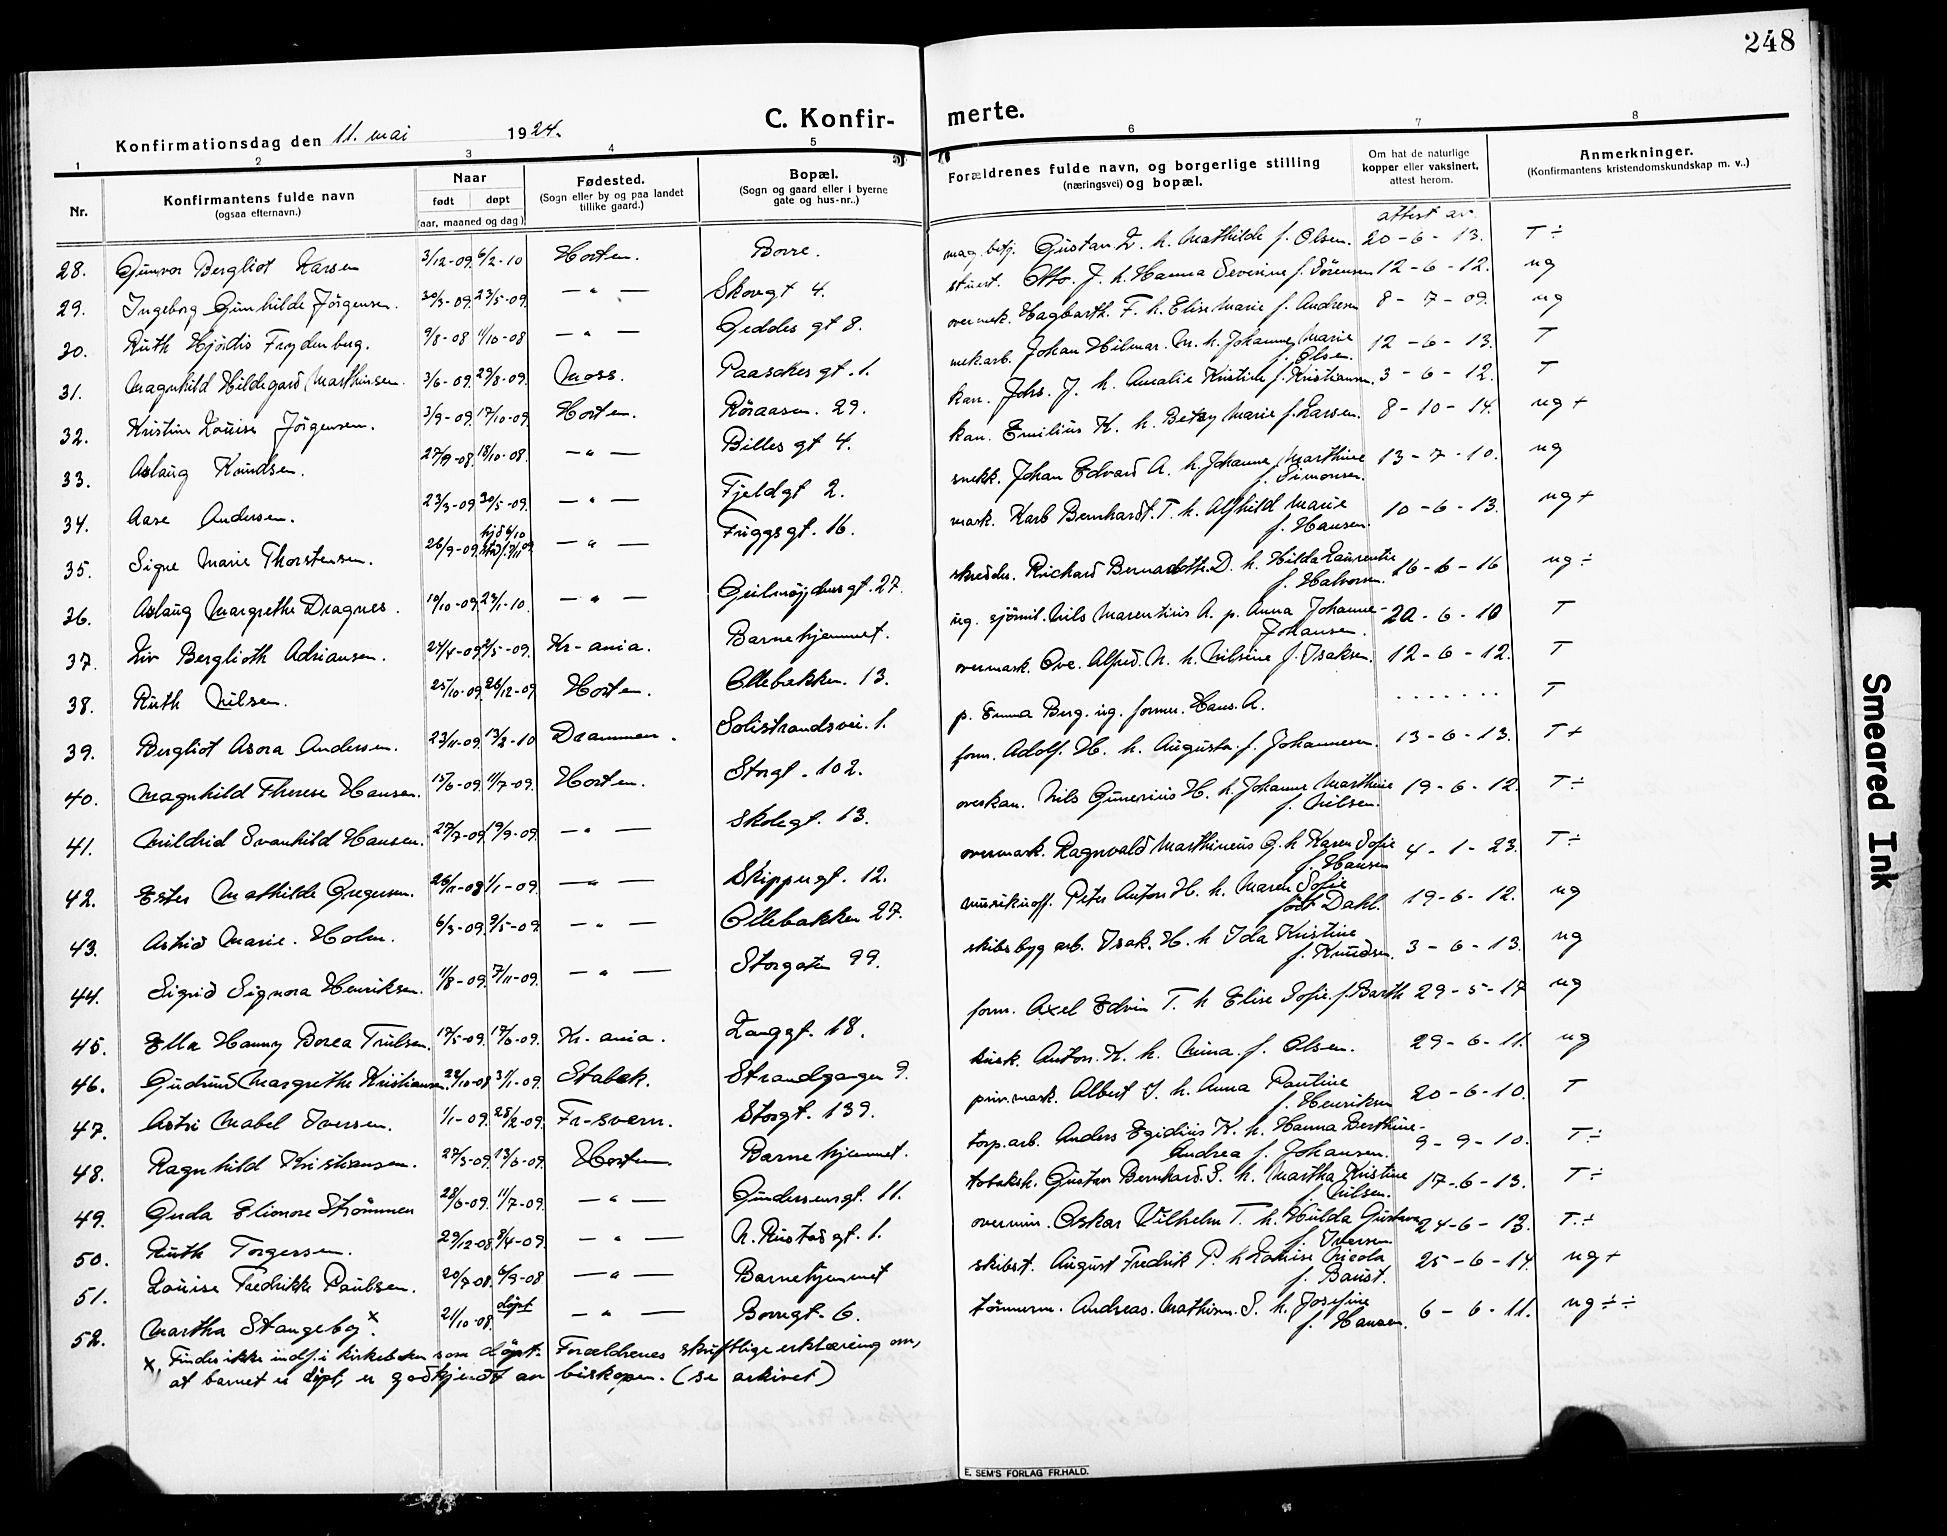 248
C. Konfir- merte.
Konfirmationsdag den 11. mai 1924.
1 2 3 4 5 6 7 8
Nr.
Konfirmantens fulde navn
(ogsaa efternavn.)
Naar
født døpt
(aar, maaned og dag)
Fødested.
(Sogn eller by og paa landet
tillike gaard.)
Bopæl.
(Sogn og gaard eller i byerne
gate og hus-nr..)
Forældrenes fulde navn, og borgerlige stilling
(næringsvei) og bopæl.
Om hat de naturlige
kopper eller vaksinert,
attest herom.
Anmerkninger.
(Konfirmantens kristendomskundskap m. v..)
attest av
28. Gunvor Bergliot Larsen 3/12-09. 6/2-10 Horten. Borre. mag. betj. Gustav L. h. Mathilde f. Olsen. 20-6-13. T÷
29. Ingeborg Gunhilde Jörgensen. 30/3-09. 23/5-09. —"— Skovgt 4. stuert. Otto. J. h. Hanna Severine f. Sörensen 12-6-12. ug
30. Ruth Hjördis Frydenberg. 9/8-08 11/10-08 —"— Geddes gt 8. overmek. Hagbarth. F. h. Elise Marie f. Andresen 8-7-09. ug
31. Magnhild Hildegard Marthinsen. 3/6-09. 29/8-09. Moss. Paaskes gt. 1. mekarb. Johan Hilmar. M. h. Johanne Marie
f. Olsen. 12-6-13. T
32. Kristine Louise Jörgensen. 3/9-09. 17/10-09. Horten. Röraasen. 29. kan. Johs. J. h. Amalie Kristine f. Kristiansen. 3-6-12. T
33. Aslaug Knudsen. 27/9-08. 18/10-08. —"— Billes gt 4. kan. Emilius K. h. Betzy Marie f. Larsen. 8-10-14. ug+
34. Aase Andersen. 23/3-09. 30/5-09. —"— Fjeldgt 2. snekk. Johan Edvard A. h. Johanne Marthine
f. Simonsen. 13-7-10. ug
35. Signe Marie Thorstensen. 26/9-09. —"— Friggsgt. 16. mask. Karl Bernhardt. T. h. Alfhild Marie
f. Hansen. 10-6-13. ug+
36. Aslaug Margrethe Dragnes. 10/10-09. 23/1-10. —"— Gjelmöjdensgt. 27. skredder. Richard Bernadotte. D. h. Hilda Laurentie
f. Halvorsen. 16-6-16 ug÷
37. Liv Berglioth Adriansen. Kr-ania. Barnehjemmet. ug. sjömil. Nils Marentius A. p. Anna Johanne
Johansen. 20-6-10 T
38. Ruth Nilsen. 25/10-09. 26/12-09 Horten. Ollebakken. 13. overmask. Ove. Alfred. N. h. Nilsine f. Isaksen. 12-6-12. T
39. Bergliot Asora Andersen. 23/11-09. 13/2-10 Drammen. Solistrandsvei. 1. p. Emma Berg. ug. former. Hans. A. ....... T
40. Magnhild Therese Hansen. 15/6-09. 11/7-09. Horten. Storgt. 102. form. Adolf. H. h. Augusta f. Johannesen. 13-6-13. T+
41. Mildrid Svanhild Hansen. 27/7-09 19/9-09. —"— Skolegt. 13. overkan. Nils Gunerius H. h. Johanne Marthine
f. Nilsen. 19-6-12. T÷
42. Ester Mathilde Gregersen. 26/11-08 1/1-09. —"— Skippergt. 12. overmask. Ragnvald Marthineus G. h Karen Sofie
f. Hansen 4-1-23. T÷
43. Astrid Marie. Holm. 6/3-09. 9/5-09 —"— Ollebakken 27. musikuoff. Peter Anton H. h. Maren Sofie
född Dahl. 19-6-12. ug
44. Sigrid Signora Henriksen. 1/8-09. 7/11-09. —"— Storgaten 99. skibsbyg arb. Isak. H. h Ida Kristine
f. Knudsen. 3-6-13. ug
45. Ella Hanny Borea Trulsen. 17/5-09. 17/6-09. Kr-ania. Langgt. 18. form. Axel Edvin T. h Elise Sofie. f. Barth 29-5-17 ug
46. Gudrun Margrethe Kristiansen. 22/10-08 31/1-09. Stabæk. Strandgangen 9. kusk. Anton. K. h. Mina. f. Olsen. 29-6-11. ug
47. Astri Mabel Iversen. 1/1-09. 28/2-09. Fr-svern. Storgt. 139. prim. mask. Albert I. h. Anna Pauline
f. Henriksen 20-6-10. T
48. Ragnhild Kristiansen. 27/3-09. 13/6-09. Horten. Barnehjemmet. torp. arb. Anders Egidius K. h. Hanna Berthine-
Andrea f. Johansen. 9-9-10. T÷
49. Gerda Elionore Strömmen 28/6-09. 11/7-09. —"— Gundersensgt. 11. tobaksh. Gustav Bernhard. S. h. Martha Kristine
f. Nilsen. 17-6-13. T÷
50. Ruth Torgersen. 29/12-08. 9/4-09. —"— N. Rustadgt. 1. overmin. Oskar Vilhelm T. h. Hulda Gustava
f. Iversen 24-6-13. T.÷
51. Louise Fredrikke Paulsen. 20/7-08. 6/9-08 —"— Barnehjemmet skibst. August Fredrik P. h Louise Nicola
f. Baust. 25-6-14. ug+
52. Martha Stangeby x. 21/10-08. döpt —"— Borregt. 6. tömmerm. Andreas. Mathison. S. h. Josefine
f. Hansen. 6-6-11. ug÷÷
x, Findes ikke indf. i kirkeboken som döpt. Forældrenes skriftlige erklæring om,
at barnet er döpt, er godkjendt av biskopen. (se arkivet)
E. SEM'S FORLAG FR.HALD.
Smeared Ink